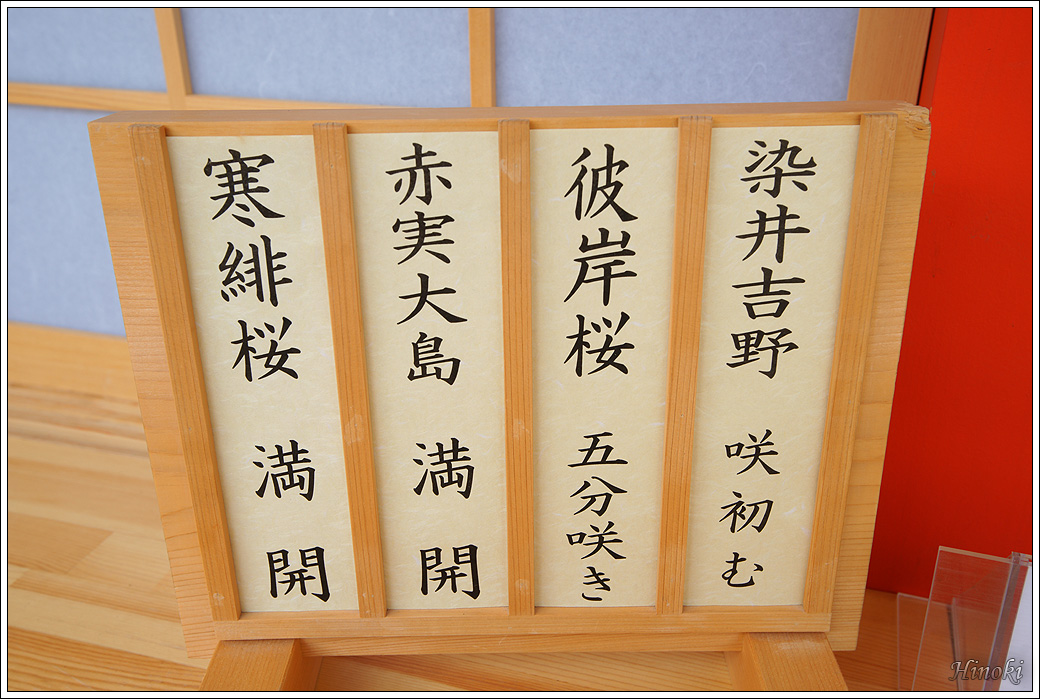 染井吉野 咲初む
彼岸桜 五分咲き
赤実大島 満開
寒緋桜 満開
Hinoki